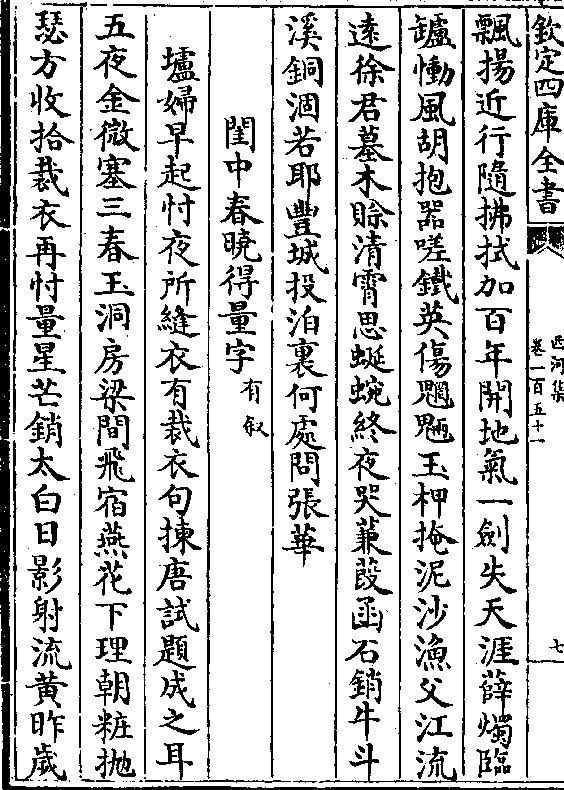 欽定四庫全書
西河集
卷一百五十一
七
飄揚近行隨拂拭加百年開地氣一劍失天涯薛燭臨
罏慟風胡抱器嗟鐵英傷魍魎玉柙掩泥沙漁父江流
遠徐君墓木賖清霄思蜒蜿終夜哭蒹葭函石銷牛斗
溪銅涸若耶豐城投泊裏何處問張華
閨中春曉得量字有叙
壚婦早起忖夜所縫衣有裁衣句揀唐試題成之耳
五夜金微塞三春玉洞房梁間飛宿燕花下理朝粧抛
瑟方收拾裁衣再忖量星芒銷太白日影射流黄昨歲